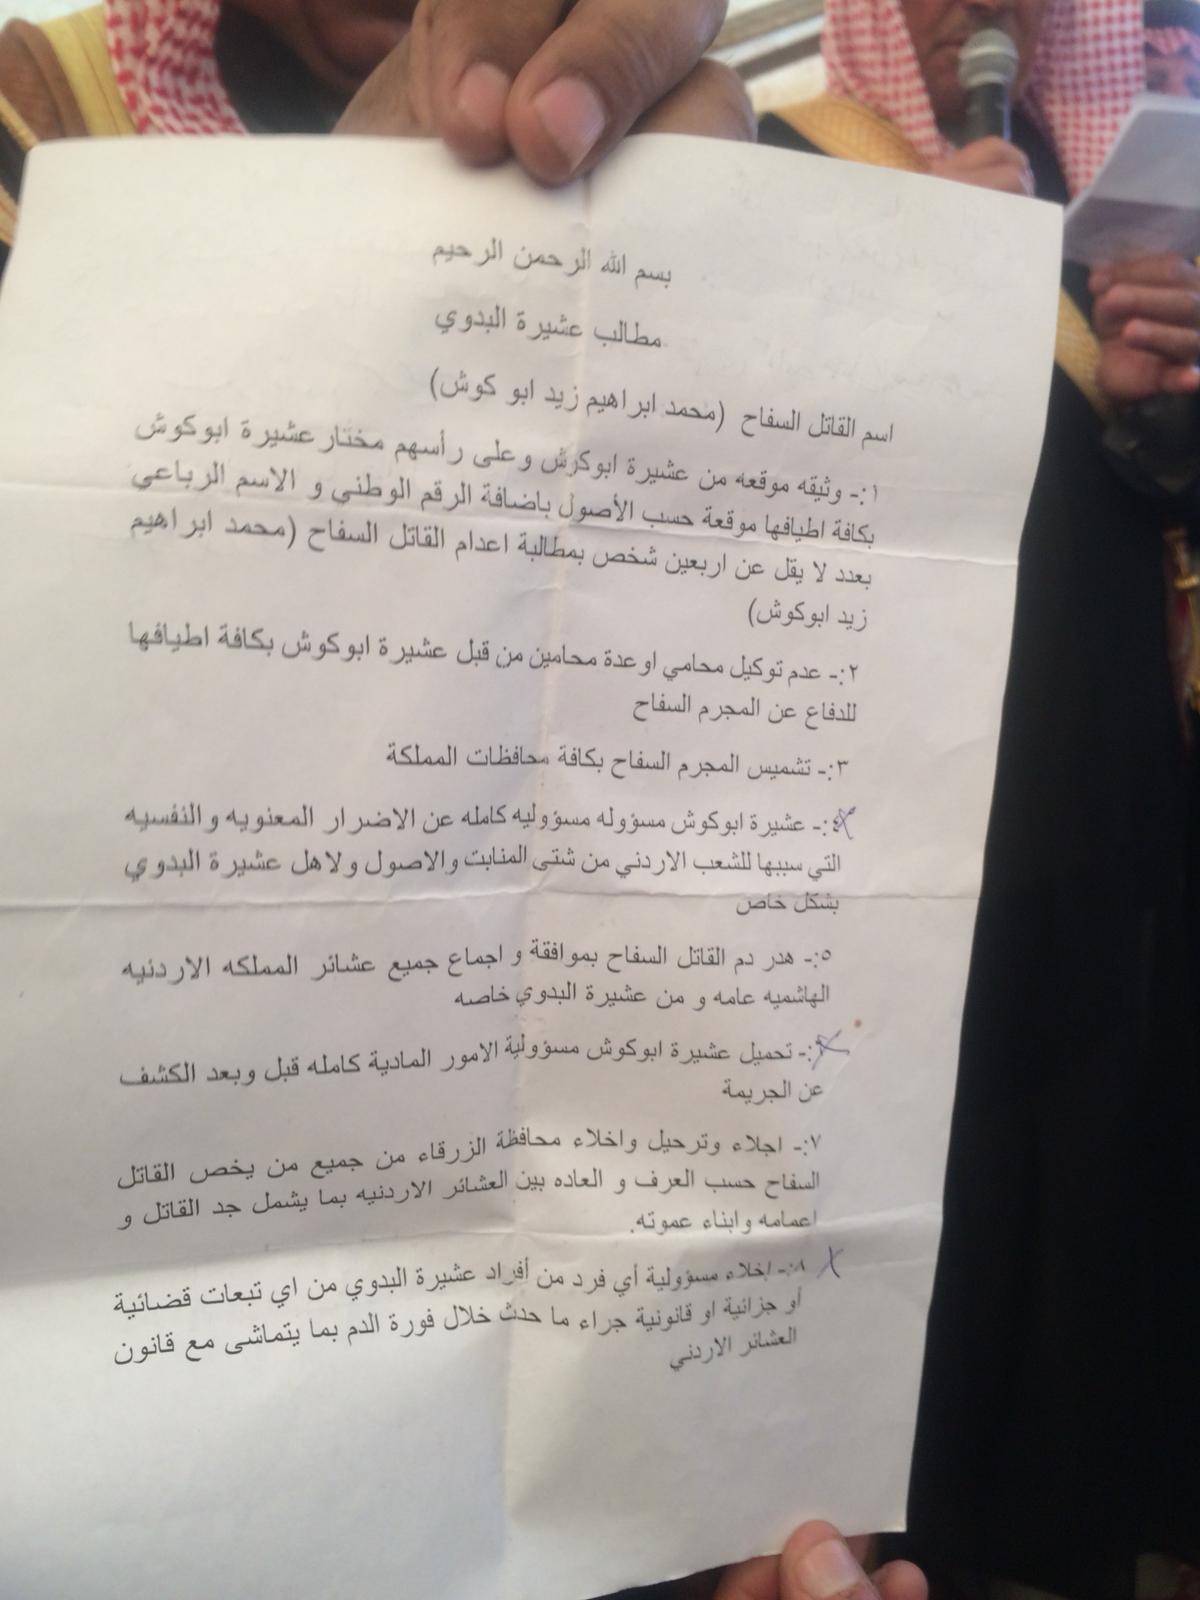 بسم الله الرحمن الرحيم
مطالب عشيرة البدوي
اسم القاتل السفاح (محمد ابراهيم زيد ابو كوش)
١:- وثيقه موقعه من عشيرة ابوكوش وعلى رأسهم مختار عشيرة ابوكوش
بكافة اطيافها موقعة حسب الأصول باضافة الرقم الوطني و الاسم الرباعي
بعدد لا يقل عن اربعين شخص بمطالبة اعدام القاتل السفاح (محمد ابراهيم
زيد ابوكوش)
٢:- عدم توكيل محامي اوعدة محامين من قبل عشيرة ابوكوش بكافة اطيافها
للدفاع عن المجرم السفاح
٣:- تشميس المجرم السفاح بكافة محافظات المملكة
٤:- عشيرة ابوكوش مسؤوله مسؤوليه كامله عن الاضرار المعنويه والنفسيه
التي سببها للشعب الاردني من شتى المنابت والاصول ولاهل عشيرة البدوي
بشكل خاص
٥:- هدر دم القاتل السفاح بموافقة و اجماع جميع عشائر المملكه الاردنيه
الهاشميه عامه و من عشيرة البدوي خاصه
:- تحميل عشيرة ابوكوش مسؤولية الامور المادية كامله قبل وبعد الكشف
عن الجريمة
٧:- اجلاء وترحيل واخلاء محافظة الزرقاء من جميع من يخص القاتل
السفاح حسب العرف و العاده بين العشائر الاردنيه بما يشمل جد القاتل و
اعمامه وابناء عموته.
٨:- إخلاء مسؤولية أي فرد من أفراد عشيرة البدوي من اي تبعات قضائية
أو جزائية او قانونية جراء ما حدث خلال فورة الدم بما يتماشى مع قانون
العشائر الاردني